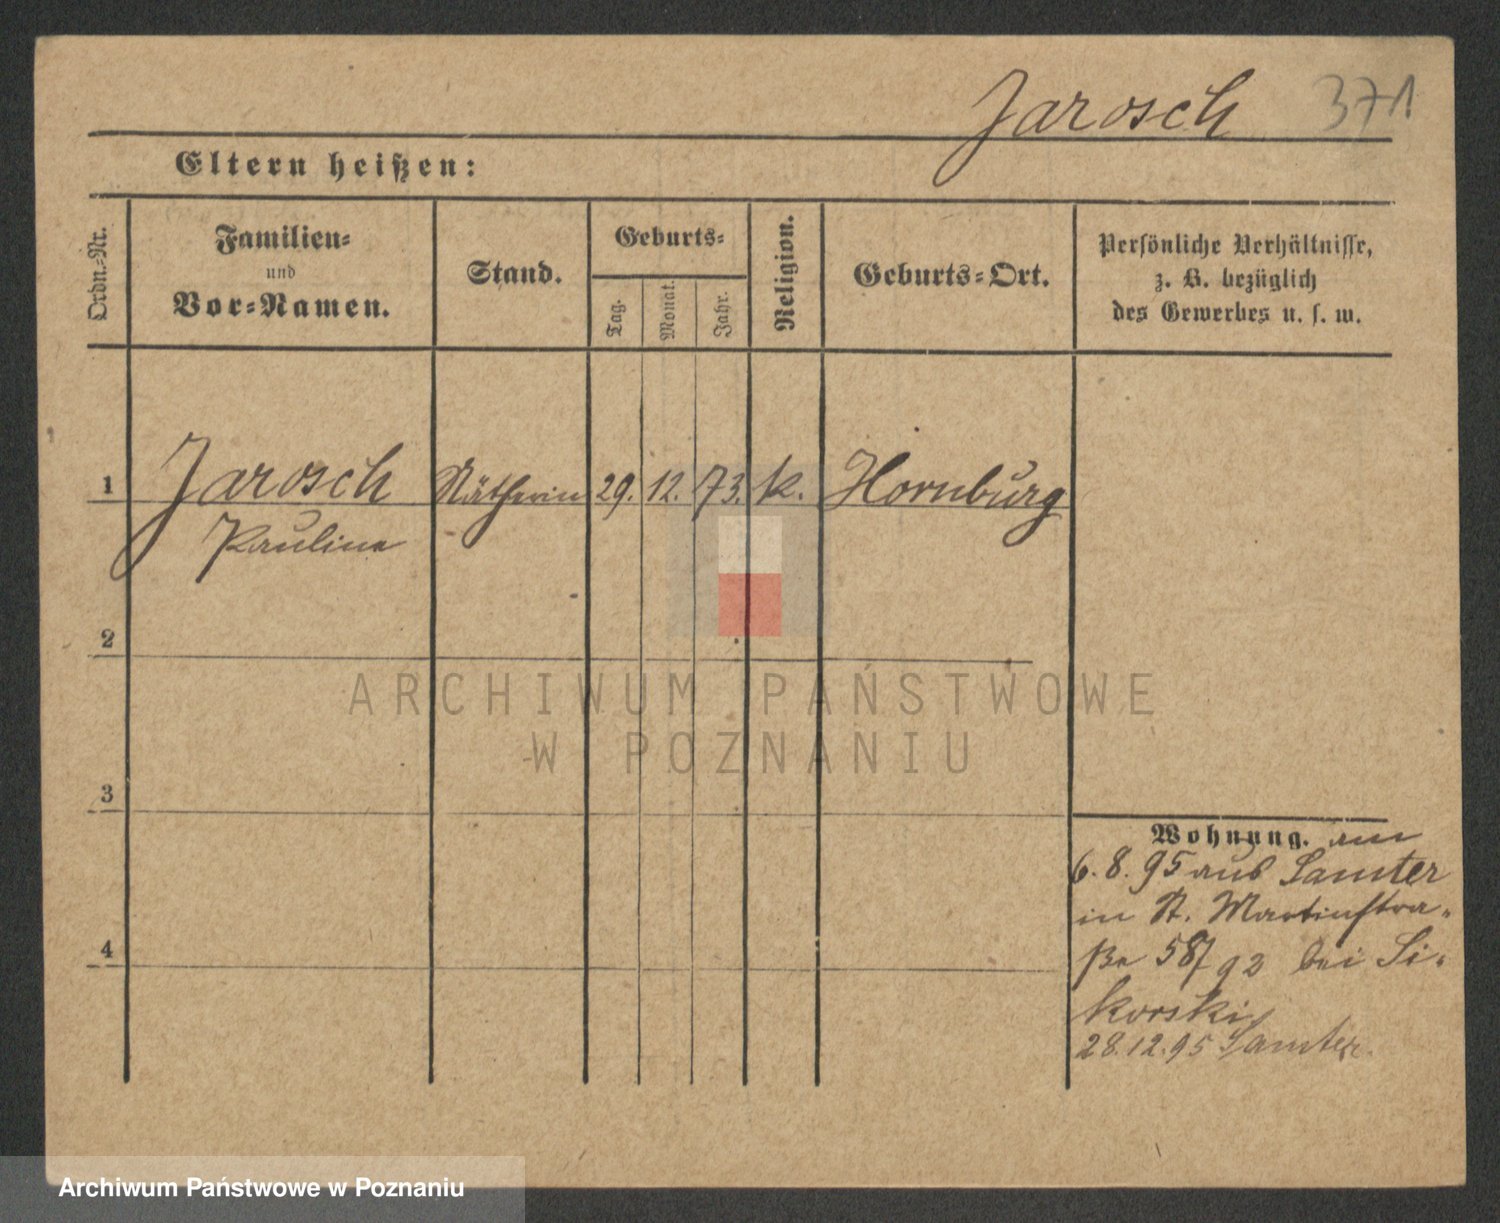 Jarosch 371
Eltern heißen:
Ordn.-Nr.
Familien-
und
Vor-Namen.
Stand.
Geburts-
Tag.
Monat.
Jahr.
Religion.
Geburts-Ort.
Persönliche Verhältnisse,
z. B. bezüglich
des Gewerbes u. s. w.
1 Jarosch Nätherin 29. 12. 73. k. Hornburg
Pauline
2
3
4
Wohnung. am
6. 8. 95 aus Samter
in St. Martinstra-
ße 58/ 92 bei Si-
korski
28.12.95 Samter.
ARCHIWUM PAŃSTWOWE
W POZNANIU
Archiwum Państwowe w Poznaniu